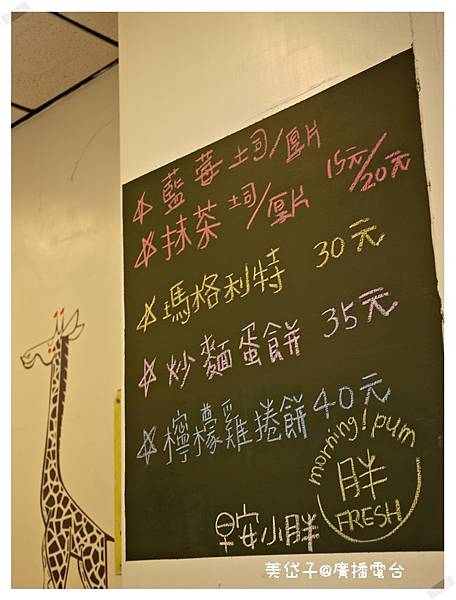 ☆藍莓土司/厚片
☆抹茶土司/厚片 15元/20元
☆瑪格利特 30元
☆炒麵蛋餅 35元
☆檸檬雞捲餅40元
morning! pum
胖
FRESH
早安小胖
美岱子@廣播電台